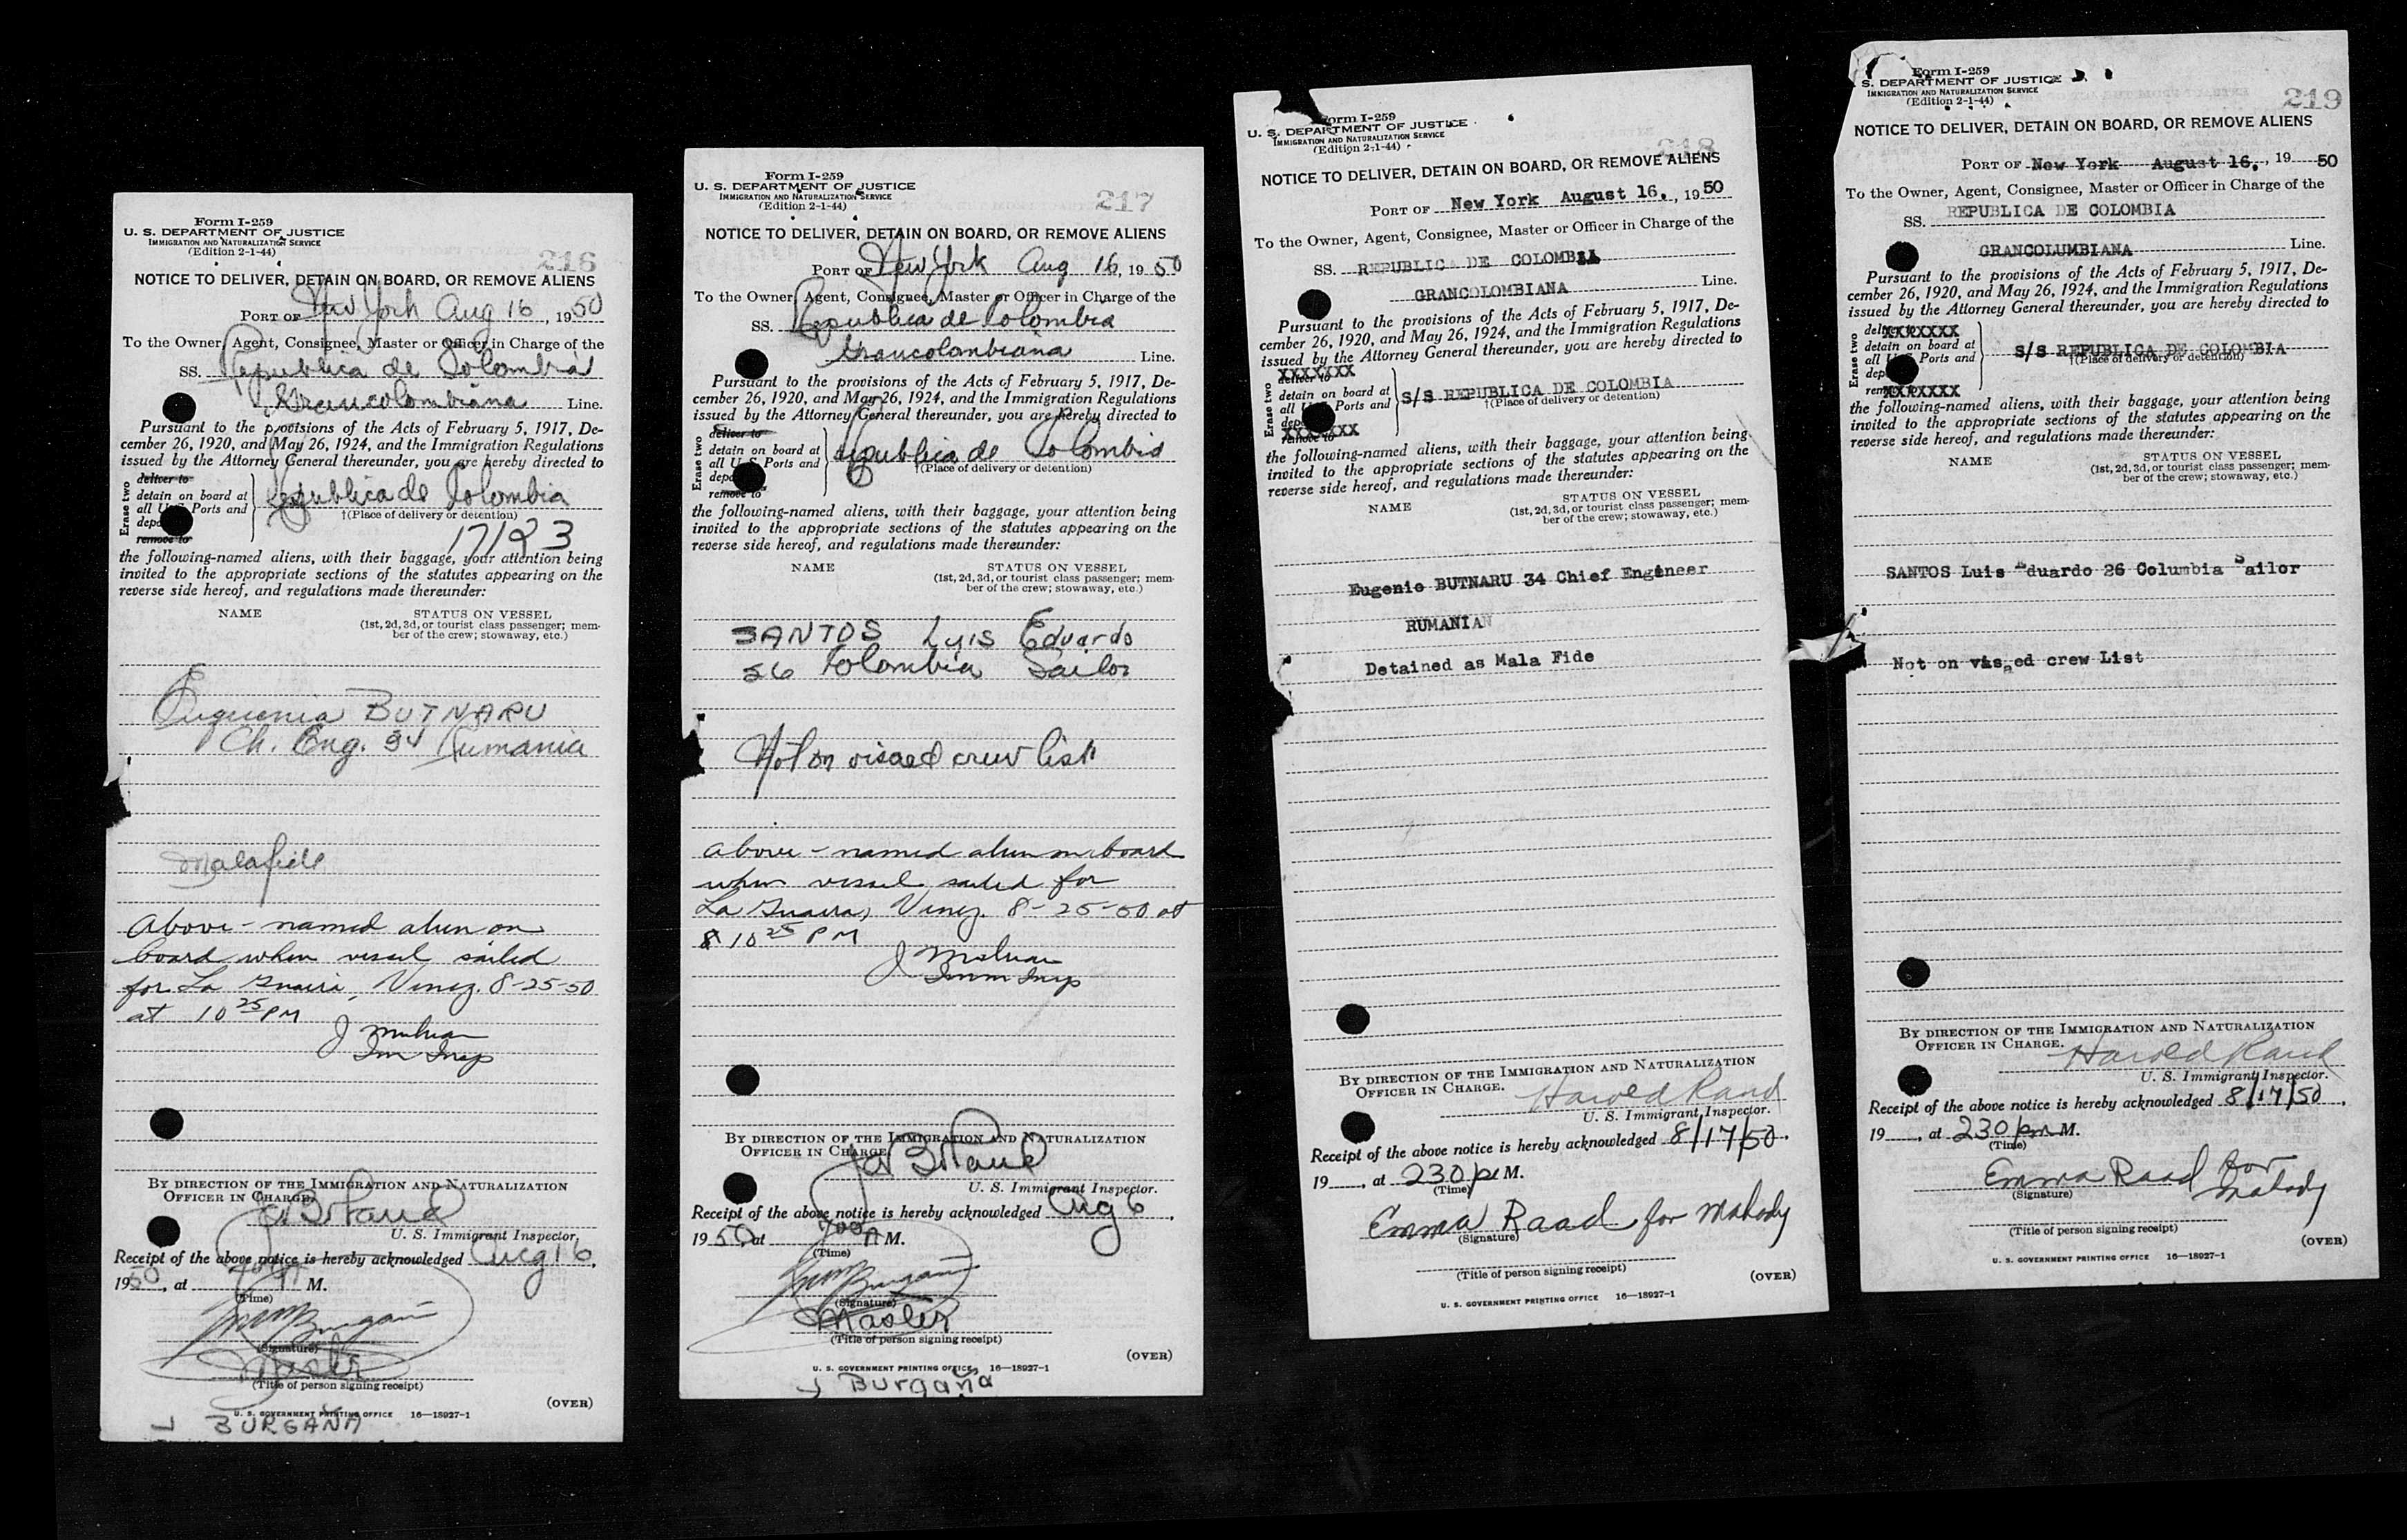 Form I-259
U. S. DEPARTMENT OF JUSTICE
IMMIGRATION AND NATURALIZATION SERVICE
(Edition 2-1-44)
216
NOTICE TO DELIVER, DETAIN ON BOARD, OR REMOVE ALIENS
PORT OF New York Aug 16, 1950
To the Owner, Agent, Consignee, Master or Officer in Charge of the
SS. Republica de Colombia
Grancolombiana Line.
Pursuant to the provisions of the Acts of February 5, 1917, De-
cember 26, 1920, and May 26, 1924, and the Immigration Regulations
issued by the Attorney General thereunder, you are hereby directed to
Erase two
deliver to
detain on board at
all U. S. Ports and
remove to
Republica de Colombia
†(Place of delivery or detention)
17123
the following-named aliens, with their baggage, your attention being
invited to the appropriate sections of the statutes appearing on the
reverse side hereof, and regulations made thereunder:
NAME STATUS ON VESSEL
(1st, 2d, 3d, or tourist class passenger; mem-
ber of the crew; stowaway, etc.)
Euguenia BUTNARU
Ch. Eng. 34 Rumania
Malafide
Above-named alien on
board when vessel sailed
for La Guaira, Venez. 8-25-50
at 10 25 PM
Imm Insp
BY DIRECTION OF THE IMMIGRATION AND NATURALIZATION
OFFICER IN CHARGE.
U. S. Immigrant Inspector.
Receipt of the above notice is hereby acknowledged Aug 16,
1950, at 700 A M.
(Time)
(Signature)
Master
(Title of person signing receipt)
(OVER)
U. S. GOVERNMENT PRINTING OFFICE 16—18927-1
J BURGAÑA
Form I-259
U. S. DEPARTMENT OF JUSTICE
IMMIGRATION AND NATURALIZATION SERVICE
(Edition 2-1-44)
217
NOTICE TO DELIVER, DETAIN ON BOARD, OR REMOVE ALIENS
PORT OF New York Aug 16, 1950
To the Owner, Agent, Consignee, Master or Officer in Charge of the
SS. Republica de Colombia
Grancolombiana Line.
Pursuant to the provisions of the Acts of February 5, 1917, De-
cember 26, 1920, and May 26, 1924, and the Immigration Regulations
issued by the Attorney General thereunder, you are hereby directed to
Erase two
deliver to
detain on board at
all U. S. Ports and
remove to
Republica de Colombia
†(Place of delivery or detention)
the following-named aliens, with their baggage, your attention being
invited to the appropriate sections of the statutes appearing on the
reverse side hereof, and regulations made thereunder:
NAME STATUS ON VESSEL
(1st, 2d, 3d, or tourist class passenger; mem-
ber of the crew; stowaway, etc.)
SANTOS Luis Eduardo
26 Colombia Sailor
Not on visaed crew list
Above-named alien on board
when vessel sailed for
La Guaira, Venez. 8-25-50 at
8 10 25 PM
Imm Insp
BY DIRECTION OF THE IMMIGRATION AND NATURALIZATION
OFFICER IN CHARGE.
U. S. Immigrant Inspector.
Receipt of the above notice is hereby acknowledged Aug 6,
1950, at 700 A M.
(Time)
(Signature)
Master
(Title of person signing receipt)
(OVER)
U. S. GOVERNMENT PRINTING OFFICE 16—18927-1
J BURGAÑA
Form I-259
U. S. DEPARTMENT OF JUSTICE
IMMIGRATION AND NATURALIZATION SERVICE
(Edition 2-1-44)
218
NOTICE TO DELIVER, DETAIN ON BOARD, OR REMOVE ALIENS
PORT OF New York August 16., 1950
To the Owner, Agent, Consignee, Master or Officer in Charge of the
SS. REPUBLICA DE COLOMBIA
GRANCOLOMBIANA Line.
Pursuant to the provisions of the Acts of February 5, 1917, De-
cember 26, 1920, and May 26, 1924, and the Immigration Regulations
issued by the Attorney General thereunder, you are hereby directed to
Erase two
XXXXXXX
deliver to
detain on board at
all U. S. Ports and
XXXXXXX
remove to
S/S REPUBLICA DE COLOMBIA
†(Place of delivery or detention)
the following-named aliens, with their baggage, your attention being
invited to the appropriate sections of the statutes appearing on the
reverse side hereof, and regulations made thereunder:
NAME STATUS ON VESSEL
(1st, 2d, 3d, or tourist class passenger; mem-
ber of the crew; stowaway, etc.)
Eugenio BUTNARU 34 Chief Engineer
RUMANIAN
Detained as Mala Fide
BY DIRECTION OF THE IMMIGRATION AND NATURALIZATION
OFFICER IN CHARGE.
Harold Rand
U. S. Immigrant Inspector.
Receipt of the above notice is hereby acknowledged 8/17/50.
19 , at 230 p M.
(Time)
Emma Raad for Mahody
(Signature)
(Title of person signing receipt)
(OVER)
U. S. GOVERNMENT PRINTING OFFICE 16—18927-1
Form I-259
S. DEPARTMENT OF JUSTICE
IMMIGRATION AND NATURALIZATION SERVICE
(Edition 2-1-44)
219
NOTICE TO DELIVER, DETAIN ON BOARD, OR REMOVE ALIENS
PORT OF New York August 16., 19 50
To the Owner, Agent, Consignee, Master or Officer in Charge of the
SS. REPUBLICA DE COLOMBIA
GRANCOLUMBIANA Line.
Pursuant to the provisions of the Acts of February 5, 1917, De-
cember 26, 1920, and May 26, 1924, and the Immigration Regulations
issued by the Attorney General thereunder, you are hereby directed to
Erase two
deliver to XXXXXXX
detain on board at
all U. S. Ports and
remove to XXXXXXX
S/S REPUBLICA DE COLOMBIA
†(Place of delivery or detention)
the following-named aliens, with their baggage, your attention being
invited to the appropriate sections of the statutes appearing on the
reverse side hereof, and regulations made thereunder:
NAME STATUS ON VESSEL
(1st, 2d, 3d, or tourist class passenger; mem-
ber of the crew; stowaway, etc.)
SANTOS Luis Eduardo 26 Columbia Sailor
Not on visaed crew List
BY DIRECTION OF THE IMMIGRATION AND NATURALIZATION
OFFICER IN CHARGE.
Harold Rand
U. S. Immigrant Inspector.
Receipt of the above notice is hereby acknowledged 8/17/50,
19 , at 230 pm M.
(Time)
Emma Raad for Mahody
(Signature)
(Title of person signing receipt)
(OVER)
U. S. GOVERNMENT PRINTING OFFICE 16—18927-1